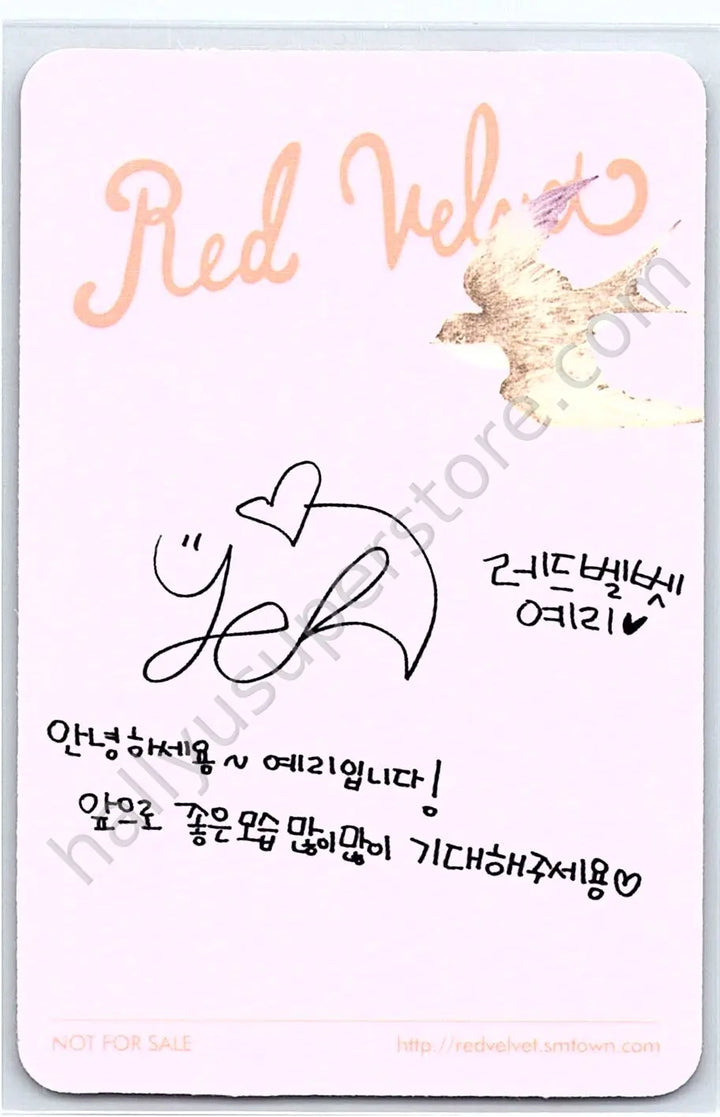 Red Velvet
yeri
레드벨벳
예리♥
안녕하세용~ 예리입니다!
앞으로 좋은모습 많이많이 기대해주세용♡
NOT FOR SALE
http://redvelvet.smtown.com
hallyusuperstore.com